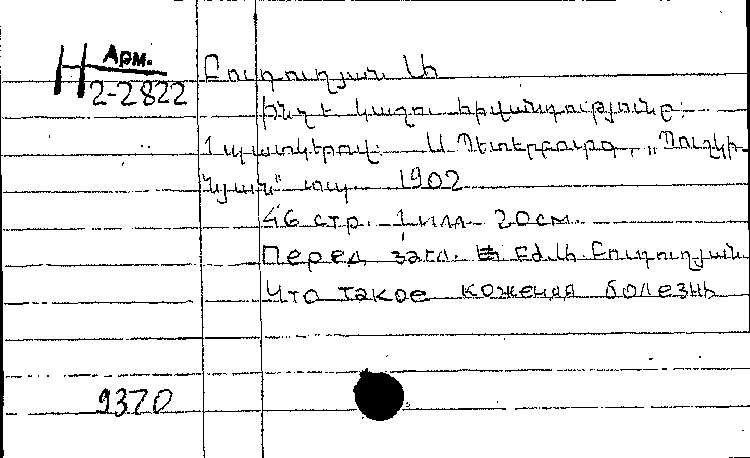 Арм.
Н 2-2822
Բուդուղյան Մ
ինչ է կաշու հիվանդությունը:
1 պատկերով. Ս. Պետերբուրգ, „Պուշկի-
նյան“ տպ. 1902
46 стр. 1 илл. 20см.
Перед загл. Մ. Բուդուղյան
Что такое кожная болезнь
9370